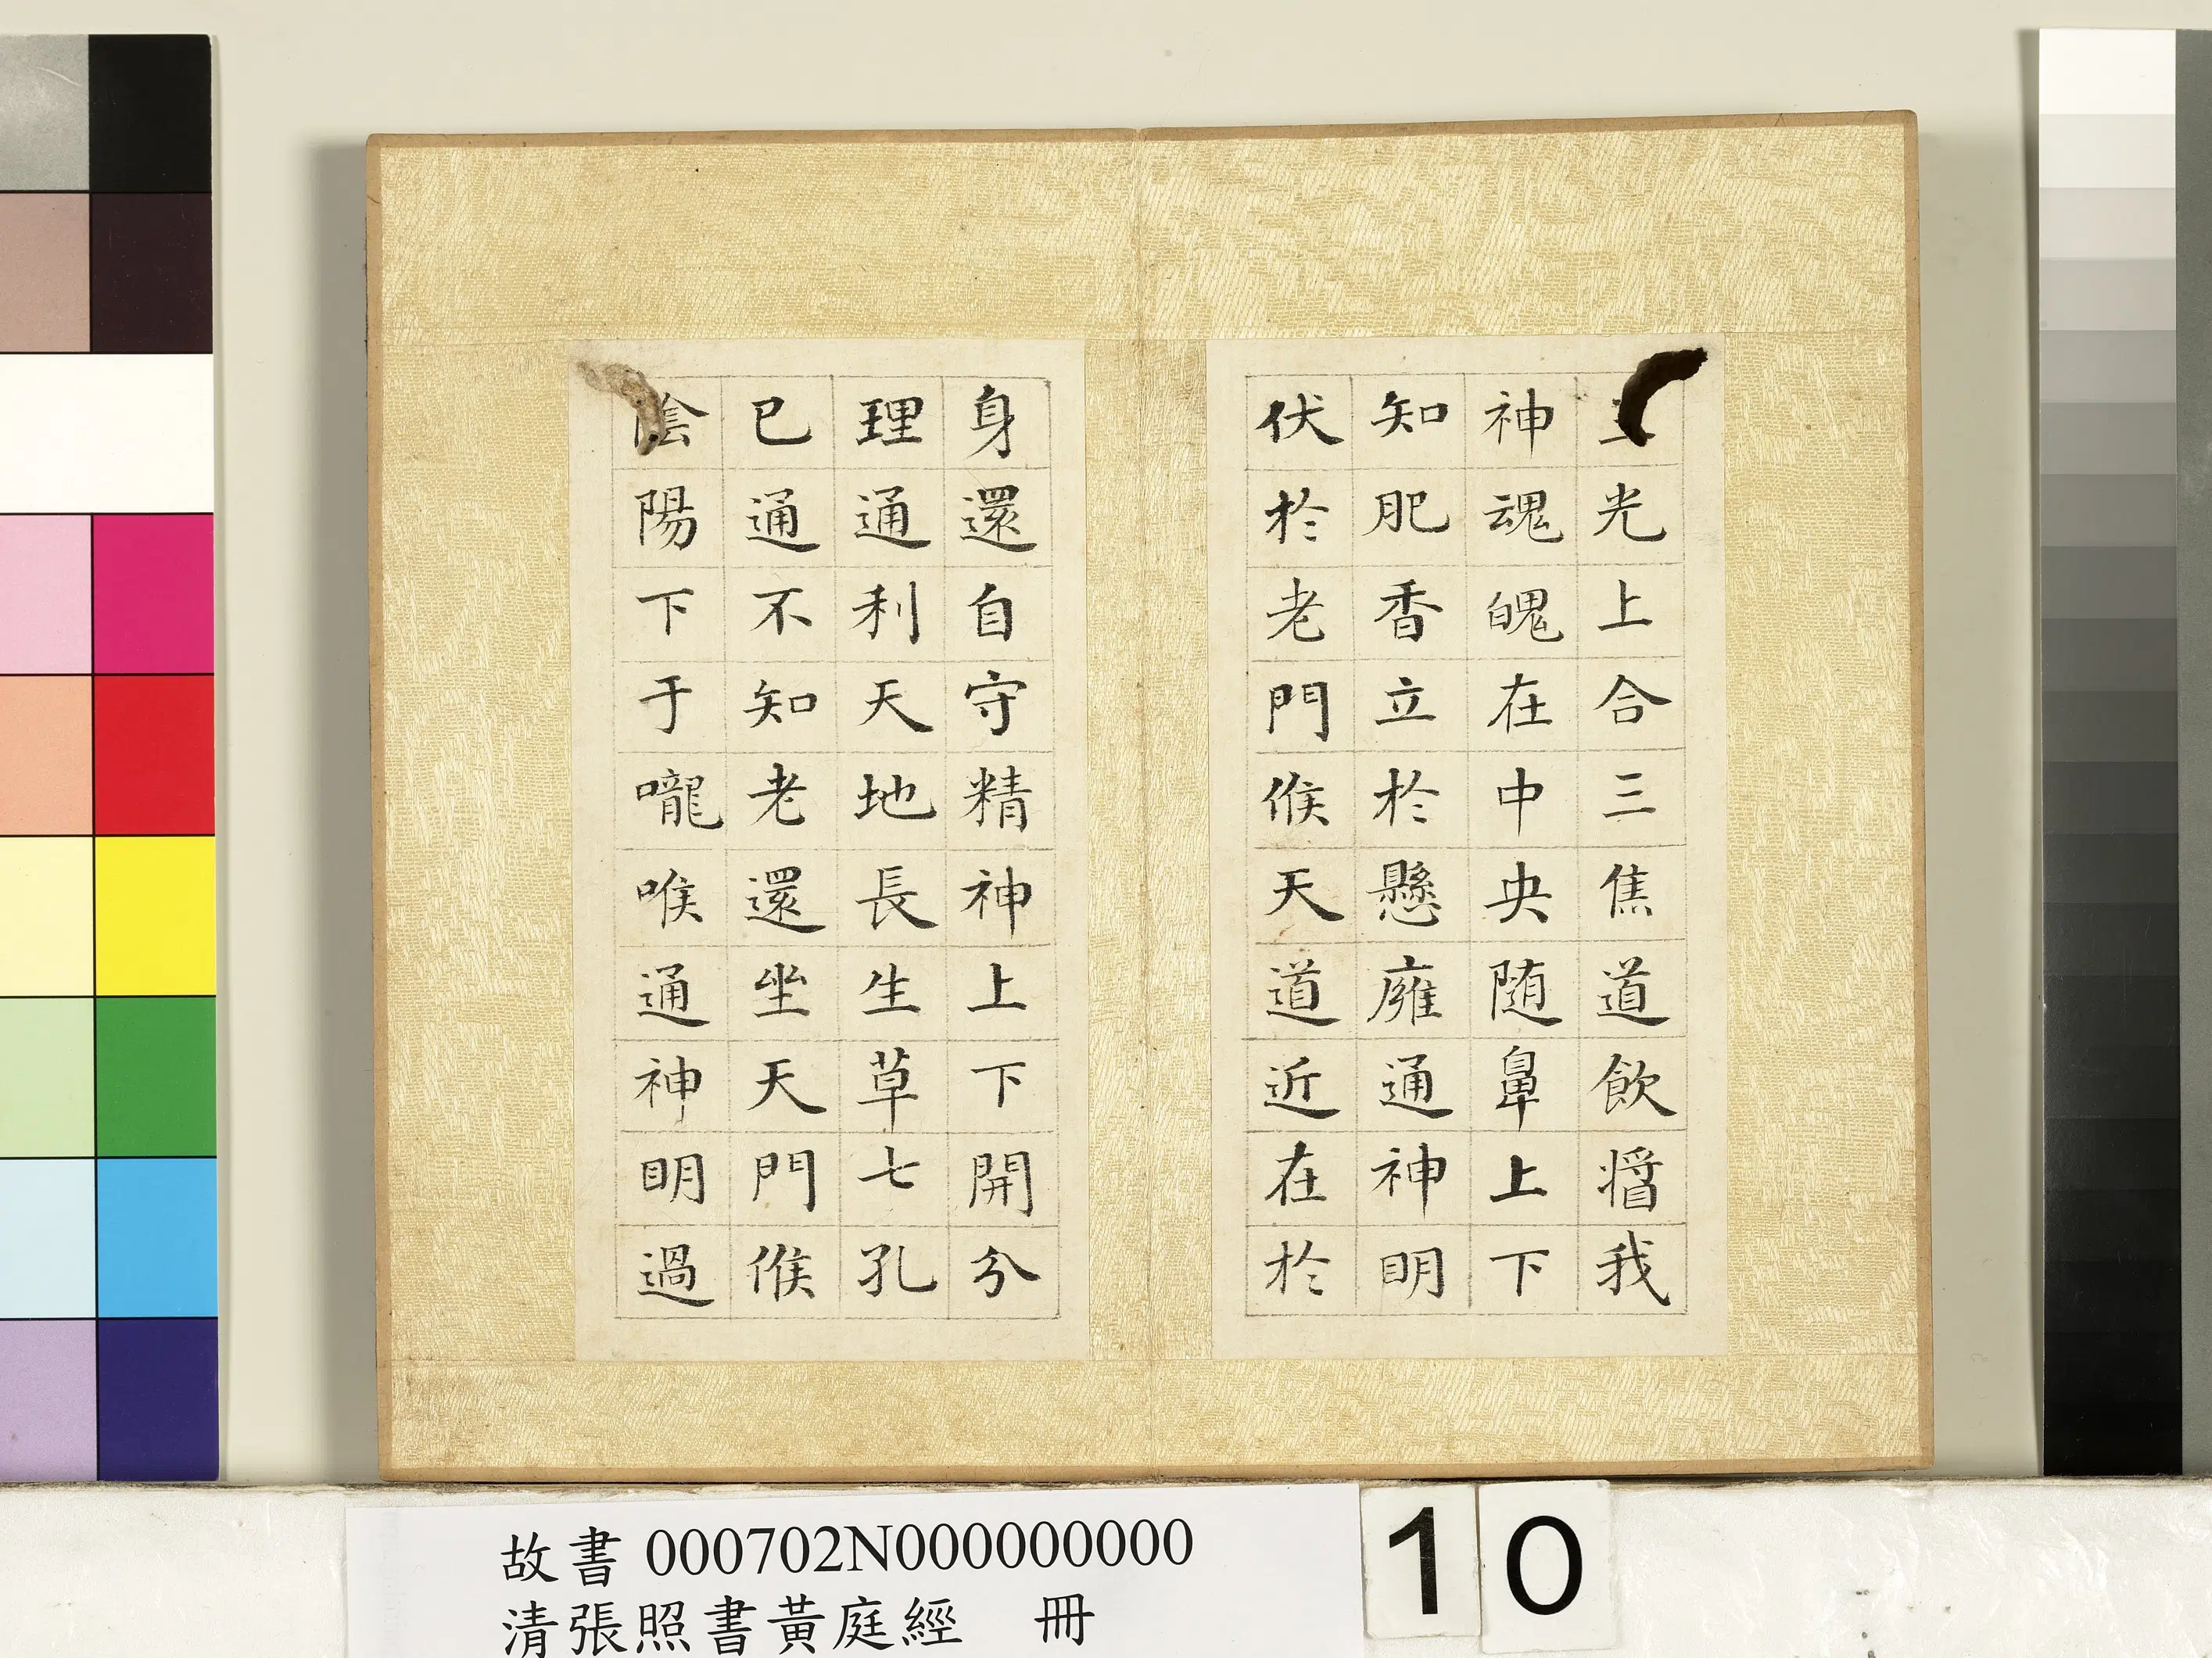 光上合三焦道飲醬我
神魂魄在中央随鼻上下
知肥香立於懸廱通神明
伏於老門候天道近在於
身還自守精神上下開分
理通利天地長生草七孔
已通不知老還坐天門候
陰陽下于嚨喉通神明過
故書 000702N000000000
清張照書黃庭經 冊
10